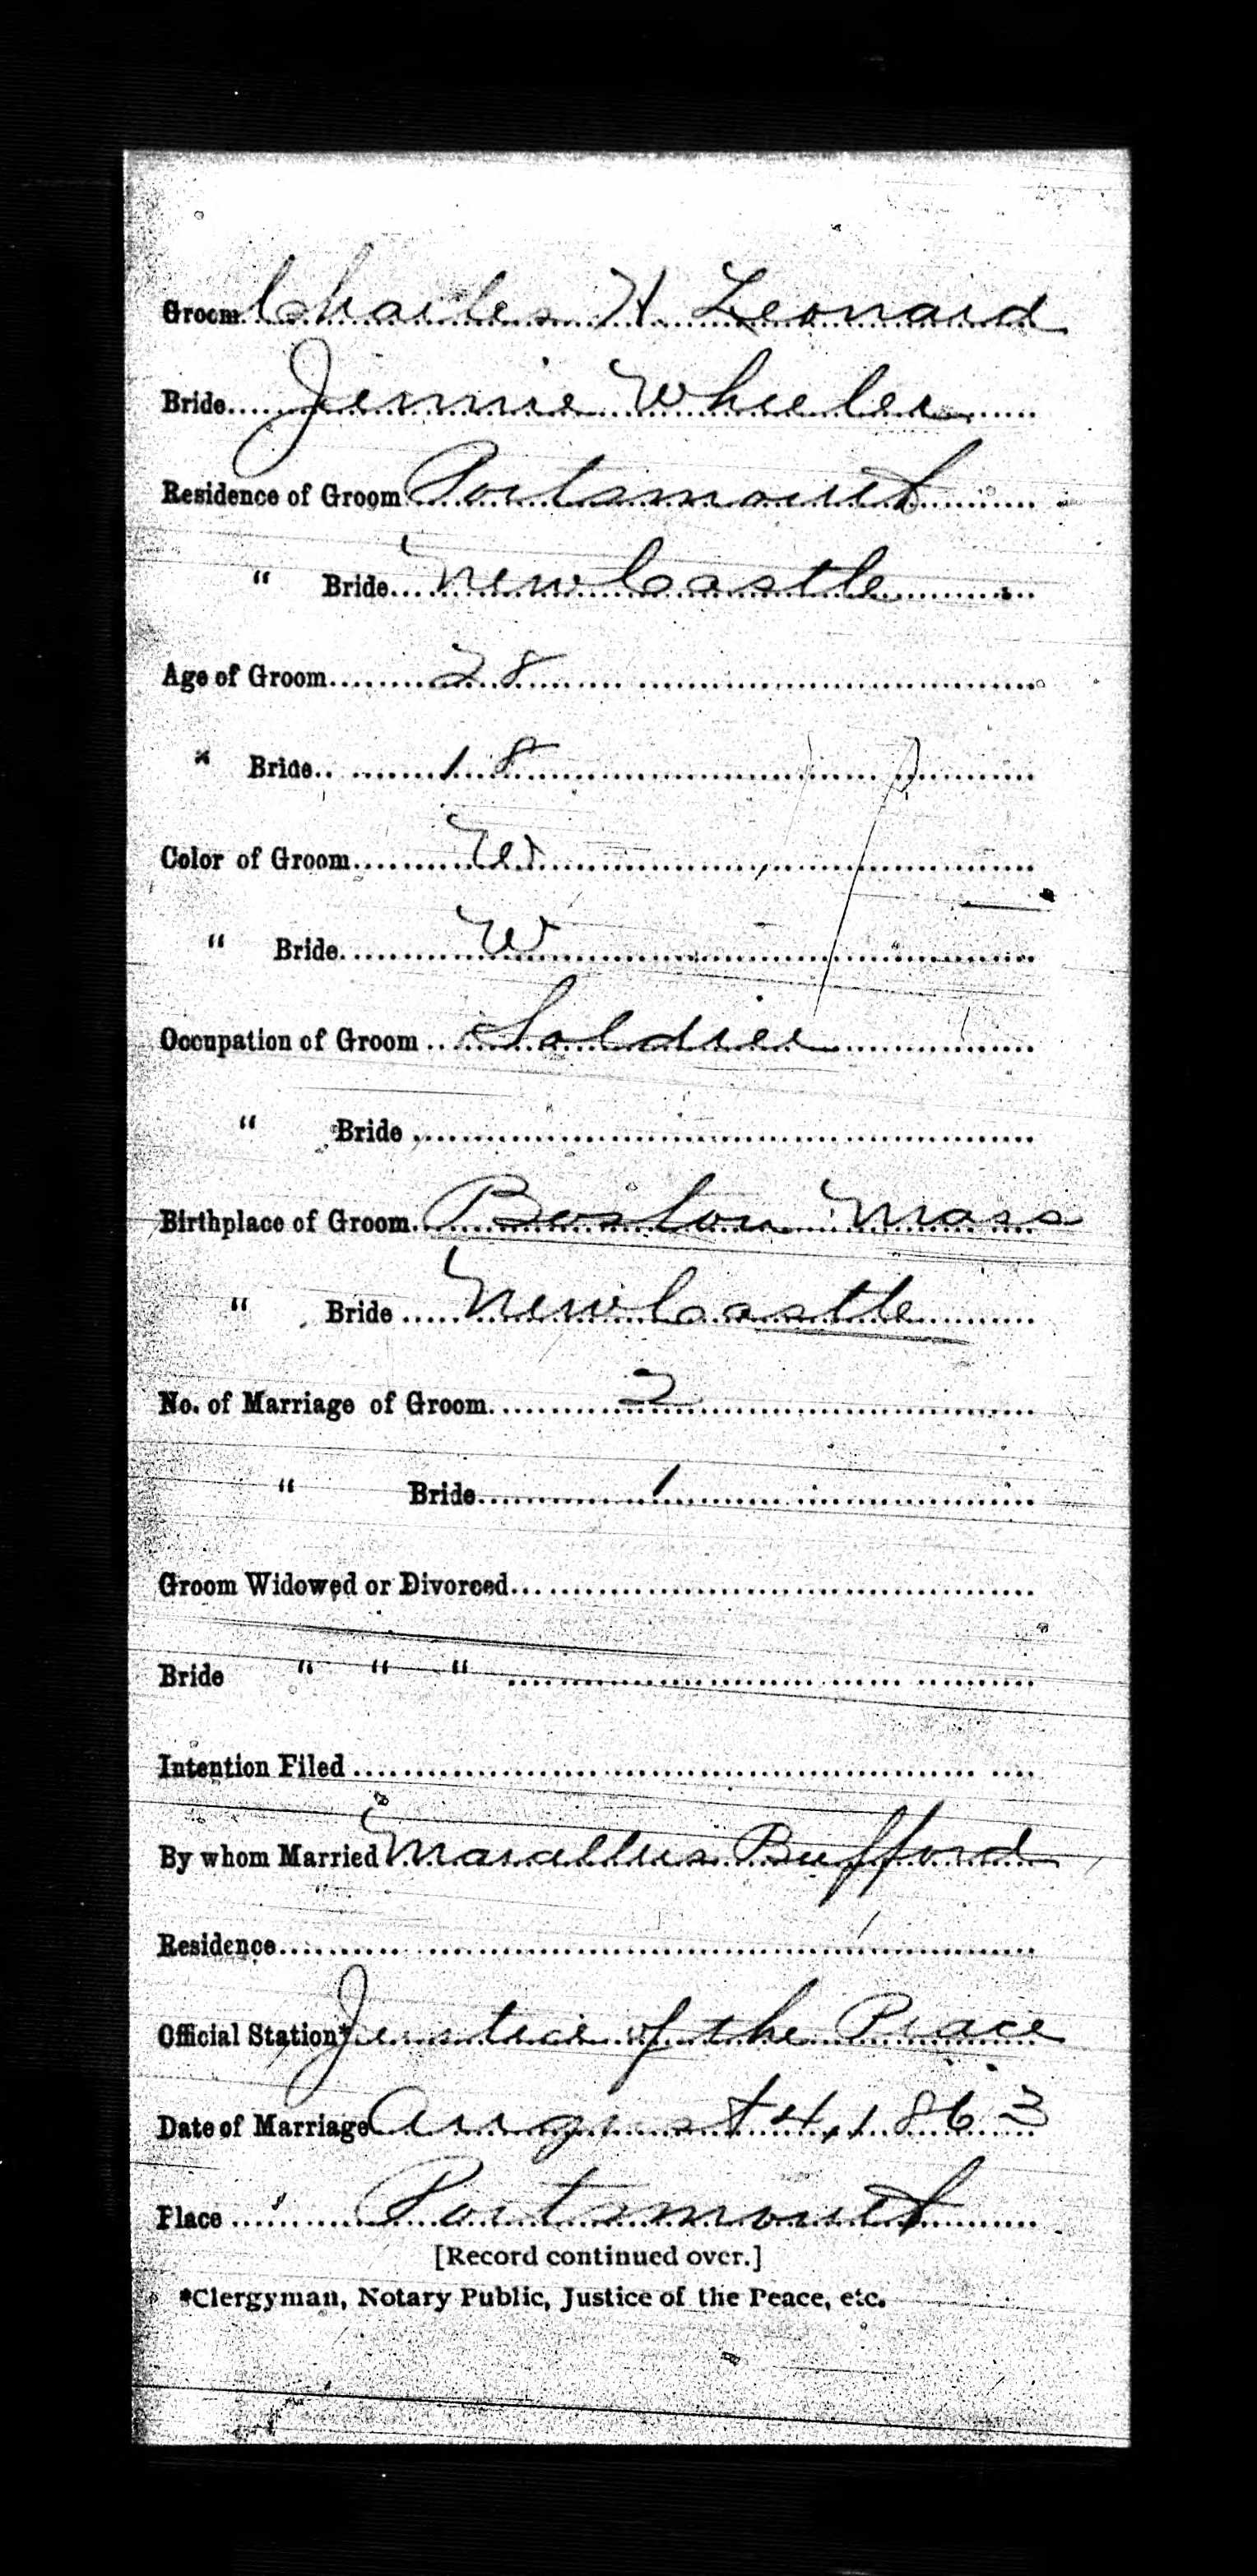 Groom Charles H Leonard
Bride Jennie Wheeler
Residence of Groom Portsmouth
" Bride New Castle
Age of Groom 28
" Bride 18
Color of Groom W
" Bride W
Occupation of Groom Soldier
" Bride
Birthplace of Groom Boston Mass
" Bride New Castle
No. of Marriage of Groom 2
" Bride 1
Groom Widowed or Divorced
Bride " " "
Intention Filed
By whom Married Marcellus Bufford
Residence
Official Station* Justice of the Peace
Date of Marriage August 4, 1863
Place " Portsmouth
[Record continued over.]
*Clergyman, Notary Public, Justice of the Peace, etc.